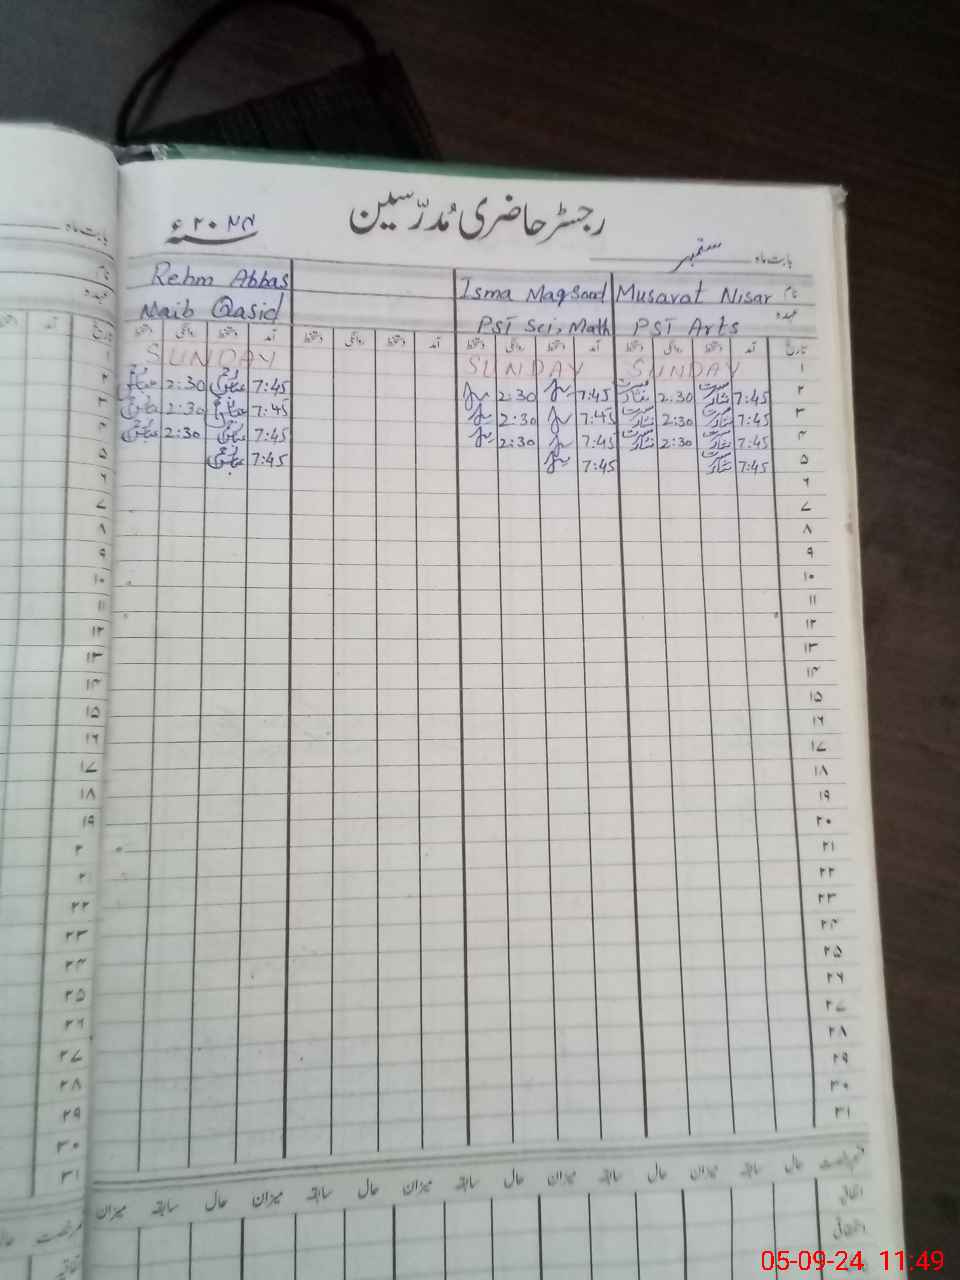 رجسٹر حاضری مُدرّسین
سنہ ۲۰۲۴ء
بابت ماہ ستمبر
بابت ماہ
نام Musarat Nisar Isma Maqsood Rehm Abbas
عہدہ PST Arts PST Sci, Math Naib Qasid
تاریخ آمد دستخط روانگی دستخط آمد دستخط روانگی دستخط آمد دستخط روانگی دستخط آمد دستخط روانگی دستخط
۱ SUNDAY SUNDAY SUNDAY
۲ 7:45 مسرت نثار 2:30 مسرت نثار 7:45 2:30 7:45 2:30
۳ 7:45 مسرت نثار 2:30 مسرت نثار 7:45 2:30 7:45 2:30
۴ 7:45 مسرت نثار 2:30 مسرت نثار 7:45 2:30 7:45 2:30
۵ 7:45 مسرت نثار 7:45 7:45
۶
۷
۸
۹
۱۰
۱۱
۱۲
۱۳
۱۴
۱۵
۱۶
۱۷
۱۸
۱۹
۲۰
۲۱
۲۲
۲۳
۲۴
۲۵
۲۶
۲۷
۲۸
۲۹
۳۰
۳۱
قسم رخصت حال سابقہ میزان حال سابقہ میزان حال سابقہ میزان حال سابقہ میزان
اتفاقی
استحقاقی
05-09-24 11:49